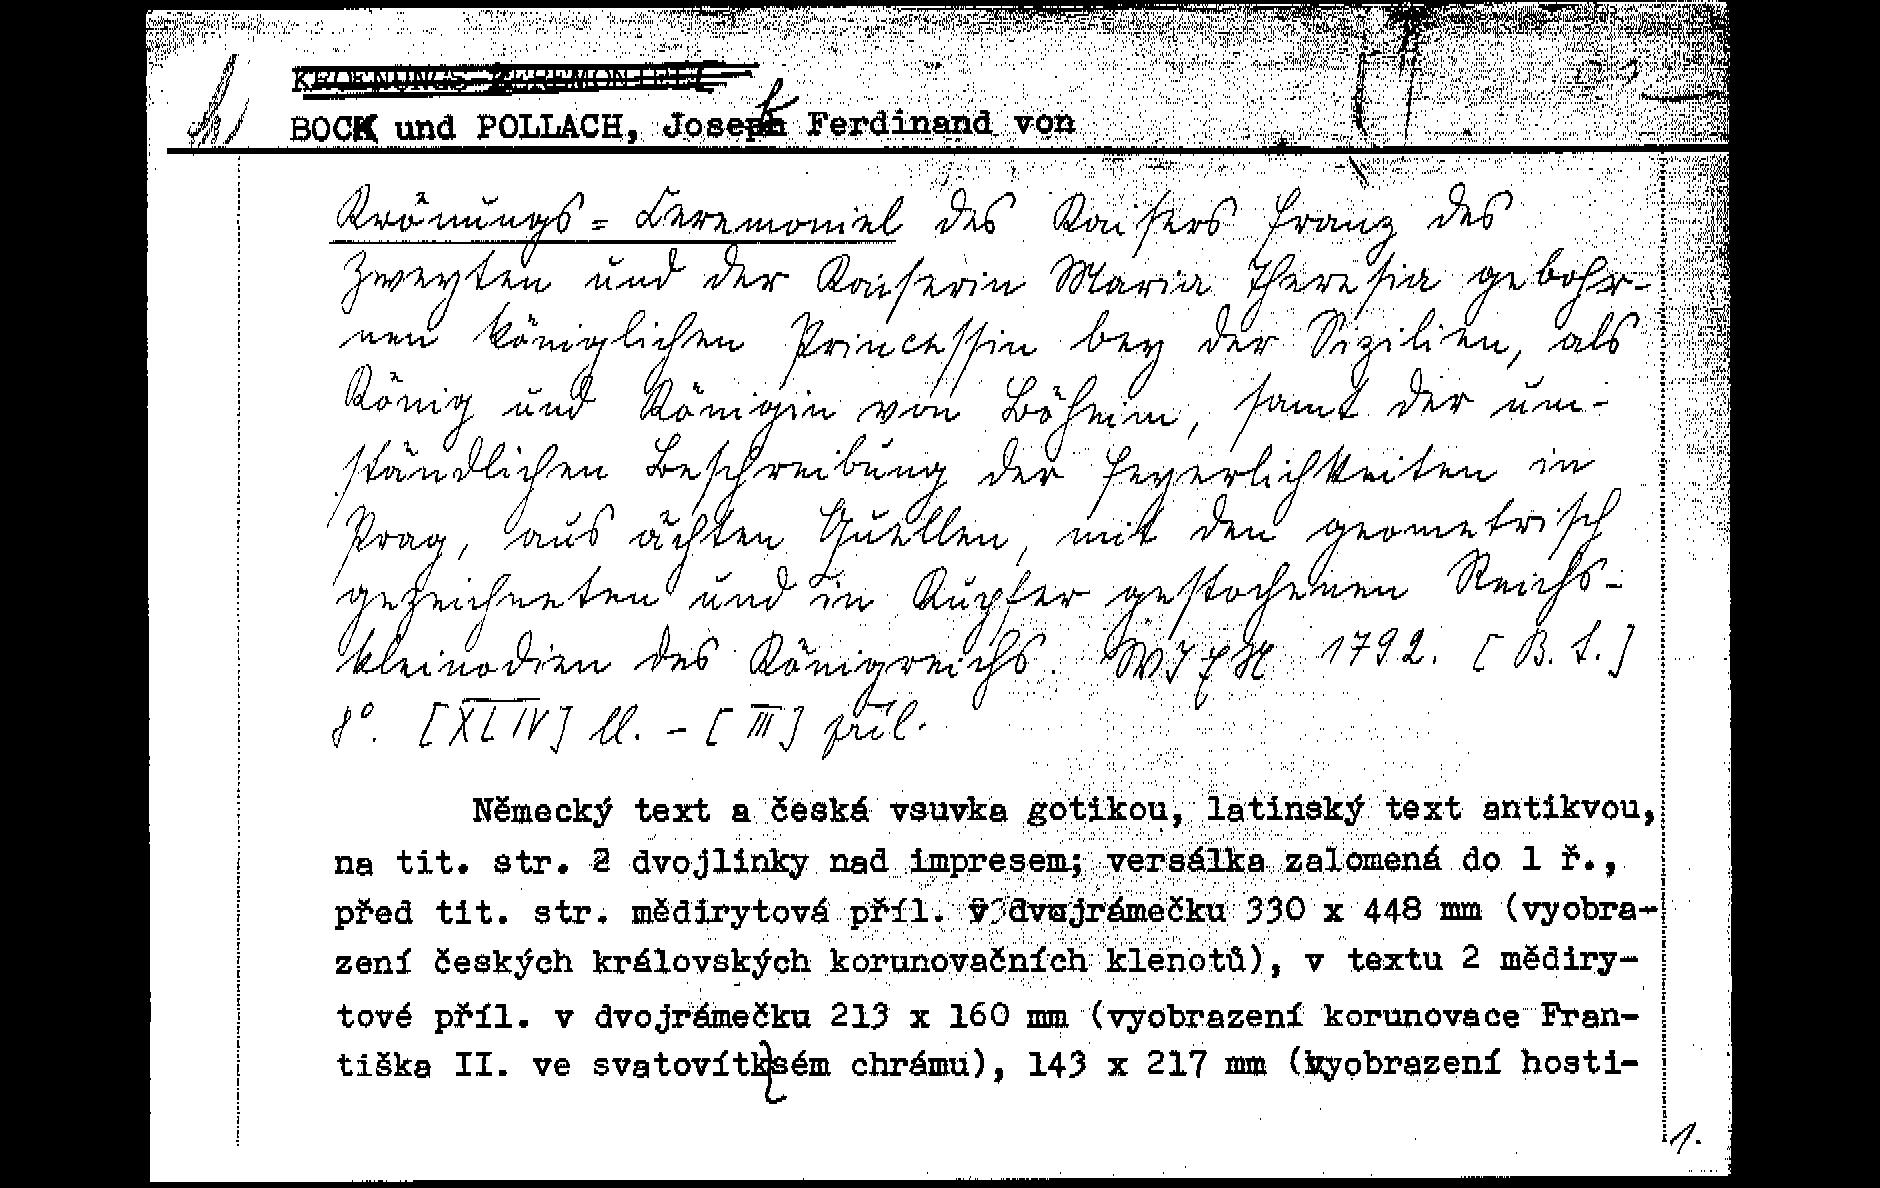 KROENUNGS ZEREMONIELL
BOCK und POLLACH, Josef Ferdinand von
Krönungs = Ceremoniel des Kaisers Franz des
Zweyten und der Kaiserin Maria Theresia gebohr-
nen königlichen Princessin bey der Sizilien, als
König und Königin von Böheim, samt der um-
ständlichen Beschreibung der Feyerlichkeiten in
Prag, aus ächten Quellen, mit den geometrisch
gezeichneten und in Kupfer gestochenen Reichs-
kleinodien des Königreichs. 1792. [B. t.]
8°. [XLIV] ll. - [III] příl.
Německý text a česká vsuvka gotikou, latinský text antikvou,
na tit. str. 2 dvojlinky nad impresem; versálka zalomená do 1 ř.,
před tit. str. mědirytová příl. v dvojrámečku 330 x 448 mm (vyobra-
zení českých královských korunovačních klenotů), v textu 2 mědiry-
tové příl. v dvojrámečku 213 x 160 mm (vyobrazení korunovace Fran-
tiška II. ve svatovítském chrámu), 143 x 217 mm (vyobrazení hosti-
1.